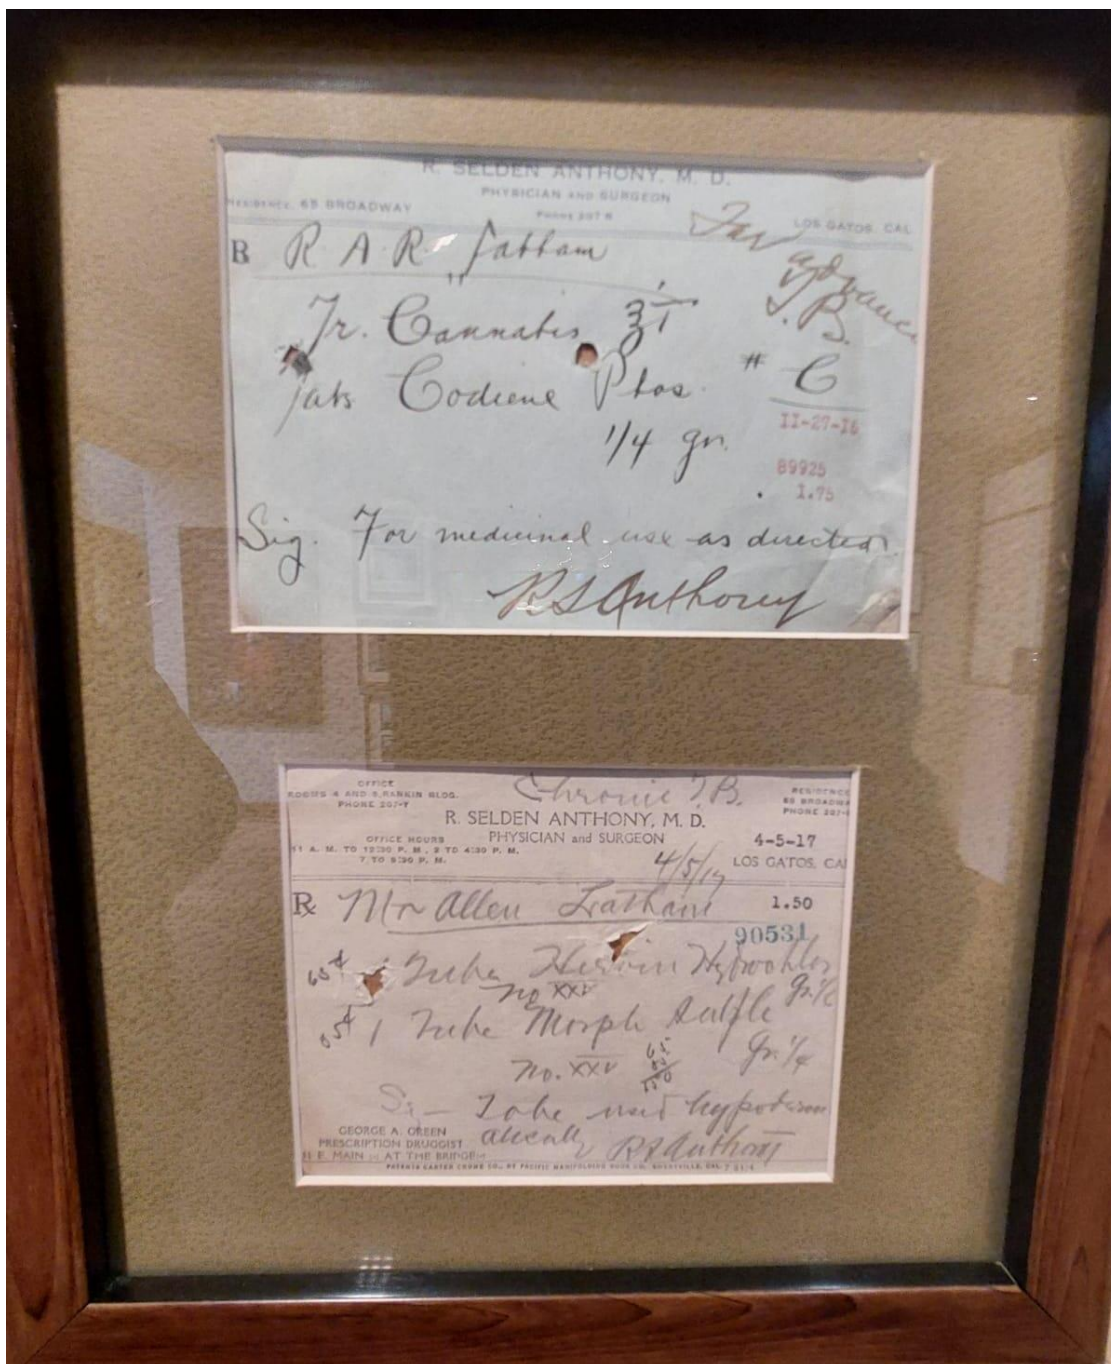 R. SELDEN ANTHONY, M. D.
PHYSICIAN AND SURGEON
RESIDENCE, 65 BROADWAY
PHONE 207 R
LOS GATOS, CAL
Far
advance
T.B.
R R A R
Tr. Cannabis ʒ i
# C
Tabs Codiene Phos.
1/4 gr.
11-27-16
89925
1.75
Sig. For medicinal use as directed
RSAnthony
OFFICE
ROOMS 4 AND 5, RANKIN BLDG.
PHONE 207-Y
Chronic T.B.
RESIDENCE
65 BROADWA
PHONE 207-
R. SELDEN ANTHONY, M. D.
PHYSICIAN and SURGEON
OFFICE HOURS
11 A. M. TO 12:30 P. M., 2 TO 4:30 P. M.
7 TO 8:30 P. M.
4-5-17
4/5/17
LOS GATOS, CAL
Rx Mr Allen
1.50
90531
65¢ 1 Tube Heroin Hydrochlor
no XXV
1 Tube Morph Sulph
gr. 1/4
no. XXV
To be used hypoderm
atically RSAnthony
GEORGE A. GREEN
PRESCRIPTION DRUGGIST
E. MAIN AT THE BRIDGE